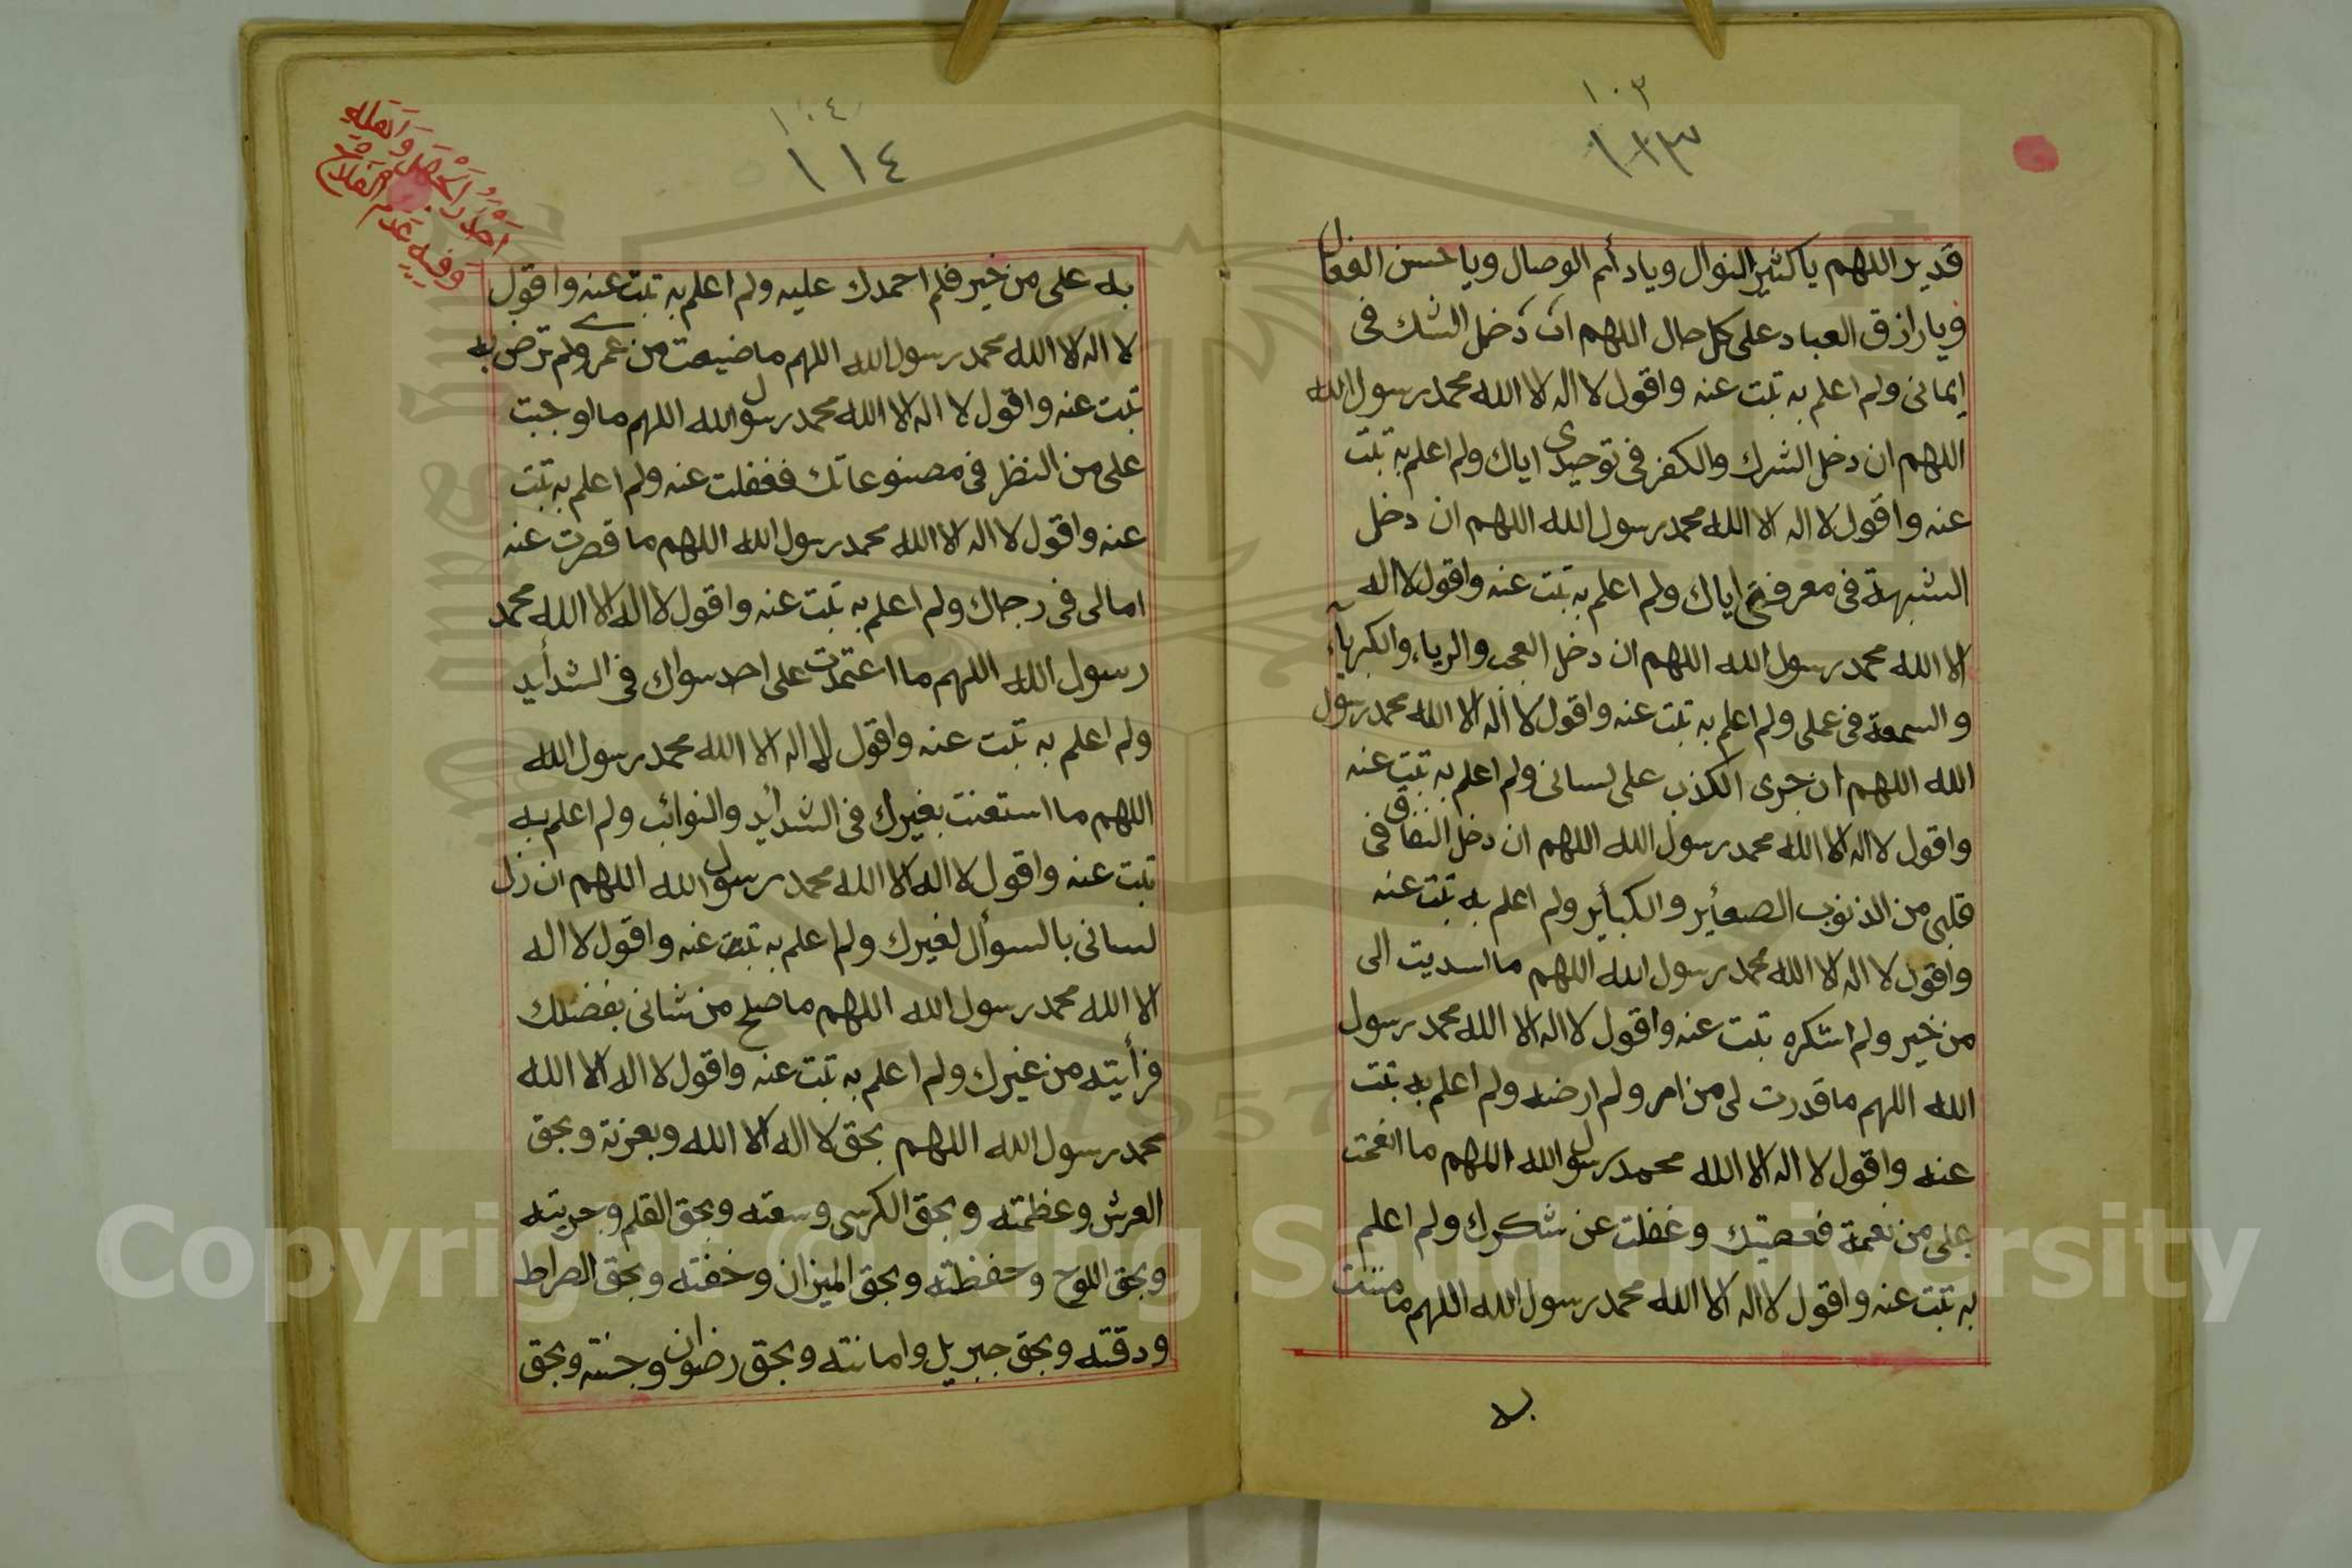 ١٠٣
١١٣
قدير اللهم يا كثير النوال ويا دأم الوصال ويا حسن الفعال
ويا رازق العباد على كل حال اللهم ان دخل الشك فى
ايمانى ولم اعلم به تبت عنه واقول لا اله الا الله محمد رسول الله
اللهم ان دخل الشرك والكفر فى توحيدى اياك ولم اعلم به تبت
عنه واقول لا اله الا الله محمد رسول الله اللهم ان دخل
الشبهة فى معرفتى اياك ولم اعلم به تبت عنه واقول لا اله
الا الله محمد رسول الله اللهم ان دخل العجب والرياء والكبرياء
والسمعة فى عملى ولم اعلم به تبت عنه واقول لا اله الا الله محمد رسول
الله اللهم ان جرى الكذب على لسانى ولم اعلم به تبت عنه
واقول لا اله الا الله محمد رسول الله اللهم ان دخل النفاق فى
قلبى من الذنوب الصغأير والكبأير ولم اعلم به تبت عنه
واقول لا اله الا الله محمد رسول الله اللهم ما اسديت الى
من خير ولم اشكره تبت عنه واقول لا اله الا الله محمد رسول
الله اللهم ما قدرت لى من امر ولم ارضه ولم اعلم به تبت
عنه واقول لا اله الا الله محمد رسول الله اللهم ما انعمت
على من نعمة فعصيتك وغفلت عن شكرك ولم اعلم
به تبت عنه واقول لا اله الا الله محمد رسول الله اللهم ما مننت
به
١٠٤
١١٤
به على من خير فلم احمدك عليه ولم اعلم به تبت عنه واقول
لا اله الا الله محمد رسول الله اللهم ما ضيعت من عمرى ولم ترض به
تبت عنه واقول لا اله الا الله محمد رسول الله اللهم ما اوجبت
على من النظر فى مصنوعاتك فغفلت عنه ولم اعلم به تبت
عنه واقول لا اله الا الله محمد رسول الله اللهم ما قصرت عنه
امالى فى رجاك ولم اعلم به تبت عنه واقول لا اله الا الله محمد
رسول الله اللهم ما اعتمدت على احد سواك فى الشدأيد
ولم اعلم به تبت عنه واقول لا اله الا الله محمد رسول الله
اللهم ما استعنت بغيرك فى الشدأيد والنوائب ولم اعلم به
تبت عنه واقول لا اله الا الله محمد رسول الله اللهم ان زل
لسانى بالسوأل لغيرك ولم اعلم به تبت عنه واقول لا اله
الا الله محمد رسول الله اللهم ما صلح من شانى بفضلك
فرأيته من غيرك ولم اعلم به تبت عنه واقول لا اله الا الله
محمد رسول الله اللهم بحق لا اله الا الله وبعزته وبحق
العرش وعظمته وبحق الكرسى وسعته وبحق القلم وجريته
وبحق اللوح وحفظته وبحق الميزان وخفته وبحق الصراط
ودقته وبحق جبريل وامانته وبحق رضوان وجنته وبحق
Copyright © King Saud University
1957